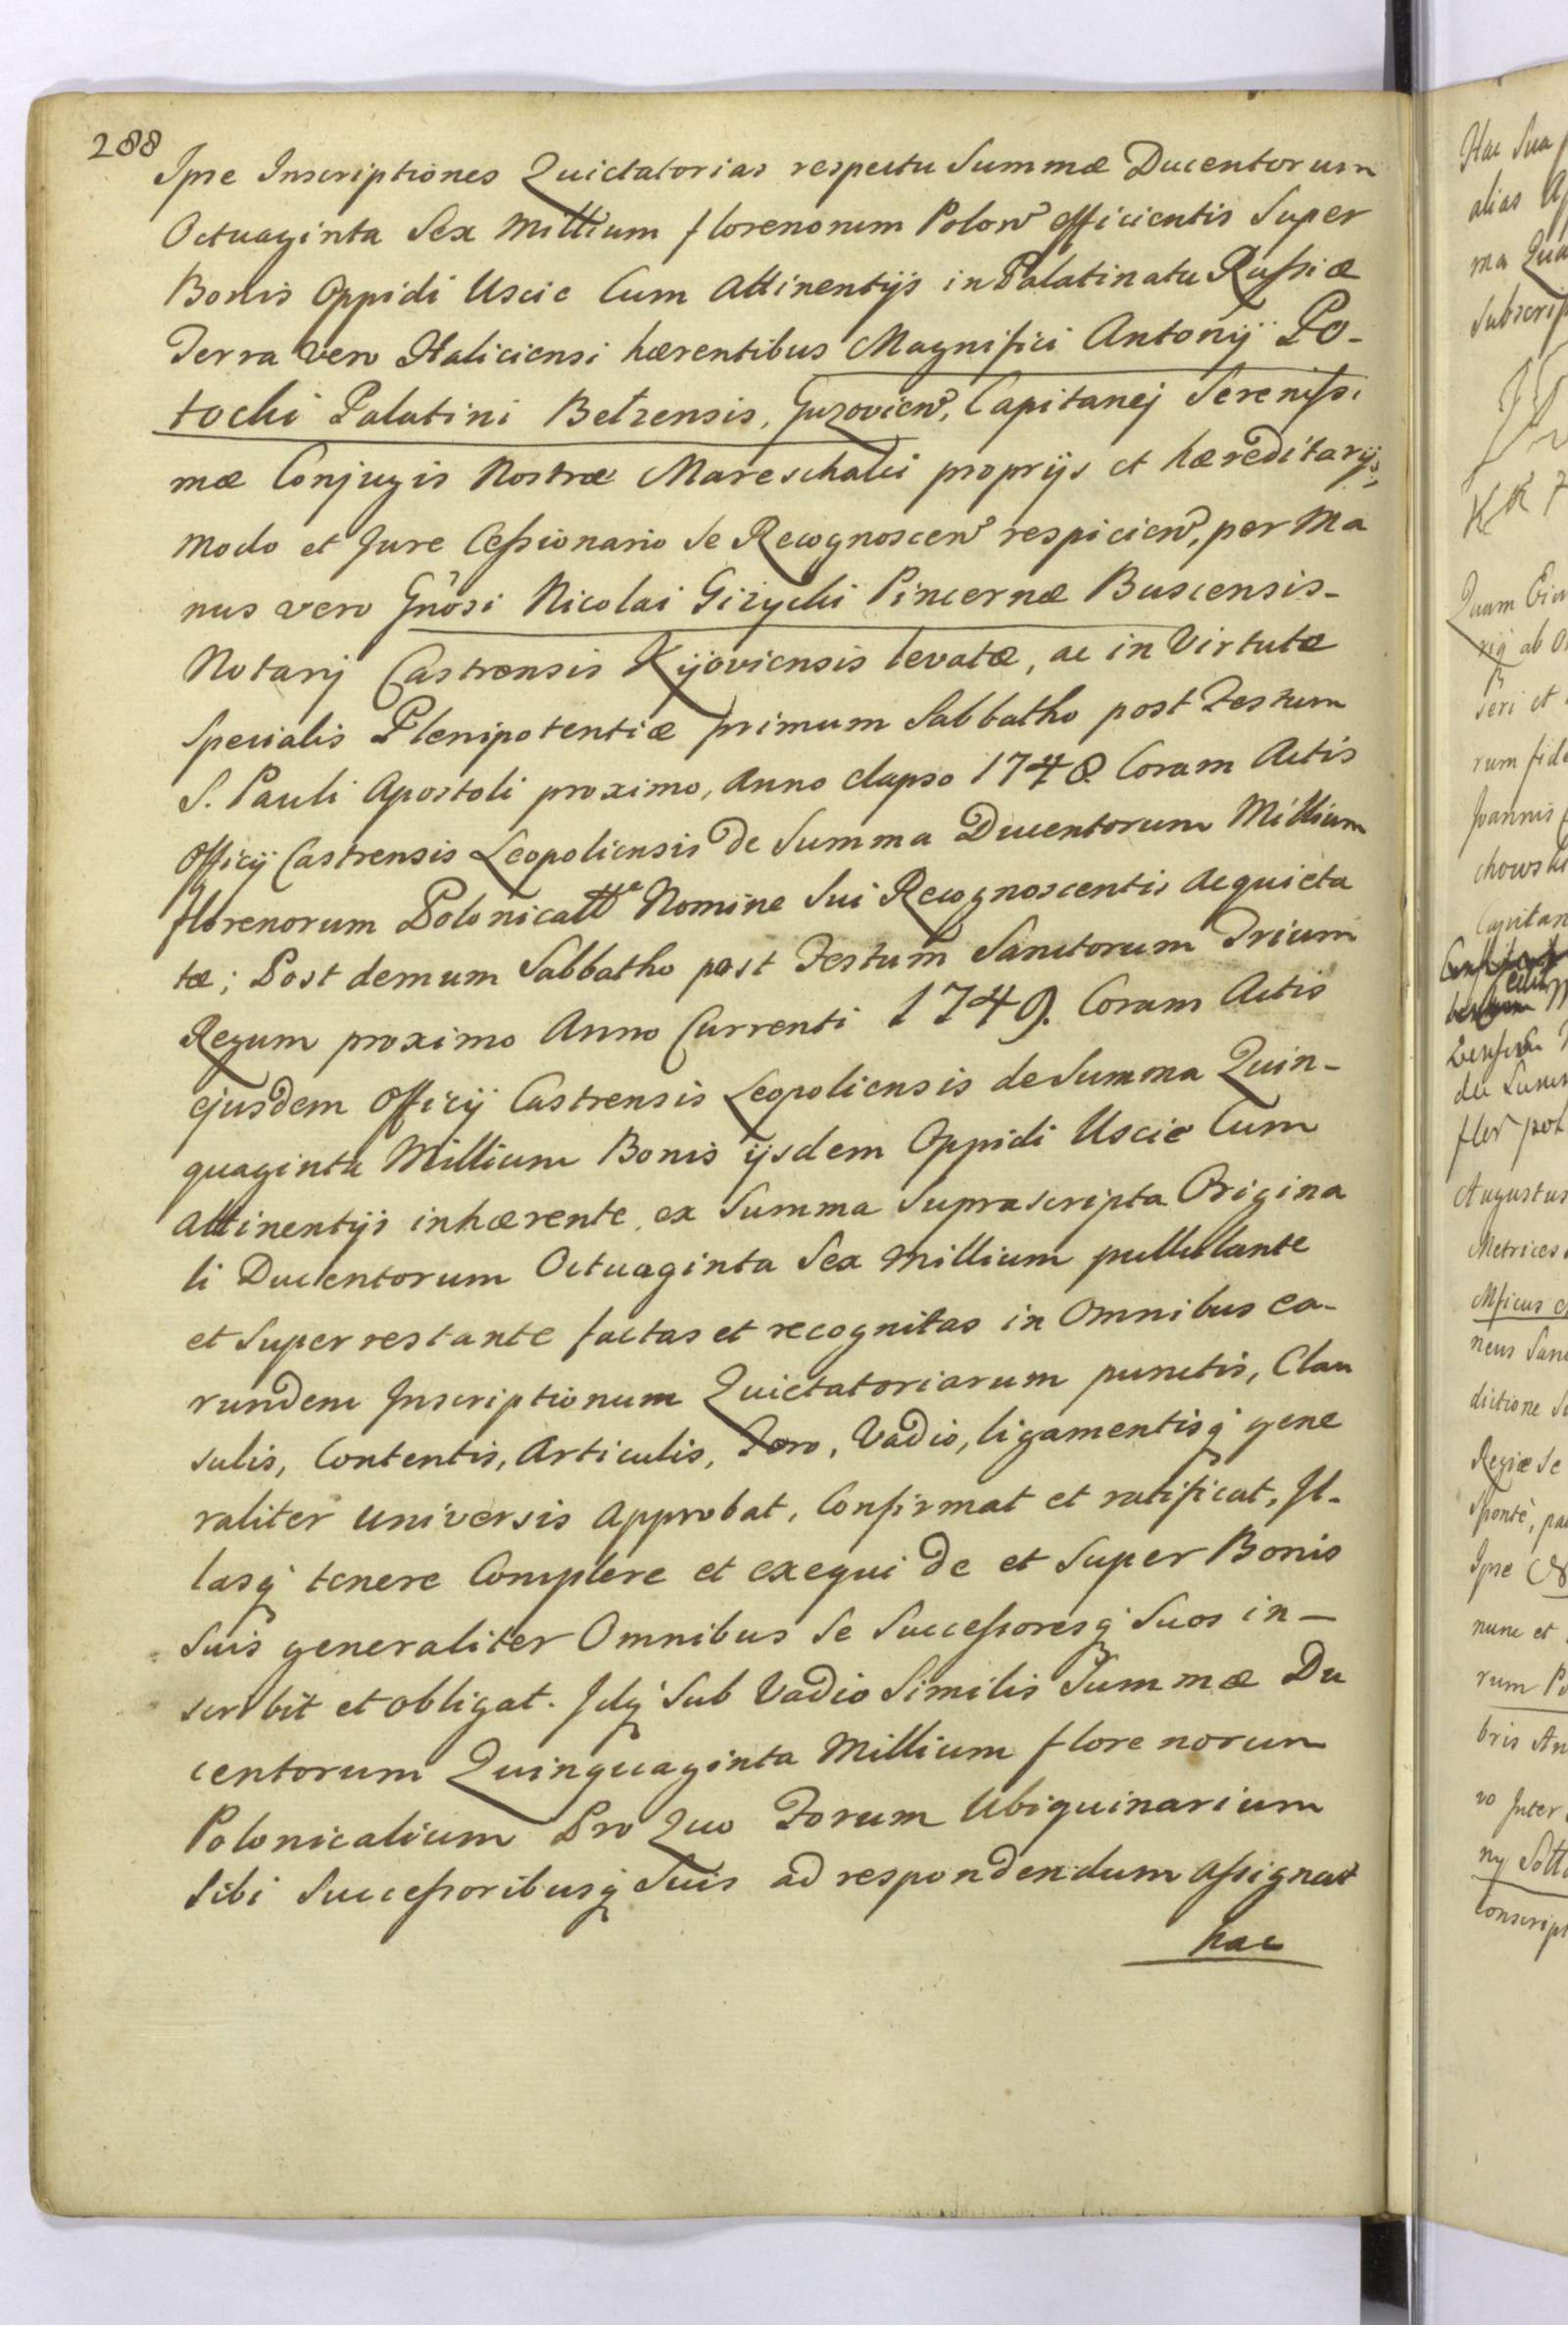 288
Ipse Inscriptiones Quietatorias respectu Summæ Ducentorum
Octuaginta Sex Millium florenorum Polon̄ efficientis Super
Bonis Oppidi Uscie Cum Attinentijs in Palatinatu Rußiæ
Terra vero Haliciensi hærentibus Magnifici Antonij Po-
tocki Palatini Belzensis, Guzovien̄, Capitanej Sereniſsi
mæ Conjugis Nostræ Mareschalci proprijs et hæreditarijs,
modo et Jure Ceſsionario Se Recognoscen̄ respicien̄, per Ma
nus vero Gñosi Nicolai Giżycki Pincernæ Buscensis-
Notarij Castrensis Kijoviensis levatæ, ac in Virtute
Specialis Plenipotentiæ primum Sabbatho post Festum
S. Pauli Apostoli proximo, Anno elapso 1748 Coram Actis
Officij Castrensis Leopoliensis de Summa Ducentorum Millium
florenorum Polonical Nomine Sui Recognoscentis Acquieta
tæ; Post demum Sabbatho post Festum Sanctorum Trium
Regum proximo Anno Currenti 1749. Coram Actis
ejusdem Officij Castrensis Leopoliensis de Summa Quin-
quaginta Millium Bonis ijsdem Oppidi Uscie Cum
Attinentijs inhærente, ex Summa Suprascripta Origina
li Ducentorum Octuaginta Sex Millium pullulante
et Super restante factas et recognitas in Omnibus ea-
rundem Inscriptionum Quietatoriarum punctis, Clau
sulis, Contentis, Articulis, Foro, Vadio, ligamentisq̃ gene
raliter universis Approbat, Confirmat et ratificat, Il-
lasq̃ tenere Complere et exequi de et Super Bonis
Suis generaliter Omnibus Se Succeſsoresq̃ Suos in-
scribit et obligat. Idq̃ Sub Vadio Similis Summæ Du
centorum Quinquaginta Millium florenorum
Polonicalium Pro Quo Forum Ubiquinarium
Sibi Succeſsoribusq̃ Suis ad respondendum Aſsignat
hac
Hac Sua
alias
ma
Quam
ab
seri et
rum
Joannis
Augustus
Metrices
neus
dictione
Regiæ Se
Sponte,
Ipse
nunc et
rum
bris An
vo Inter